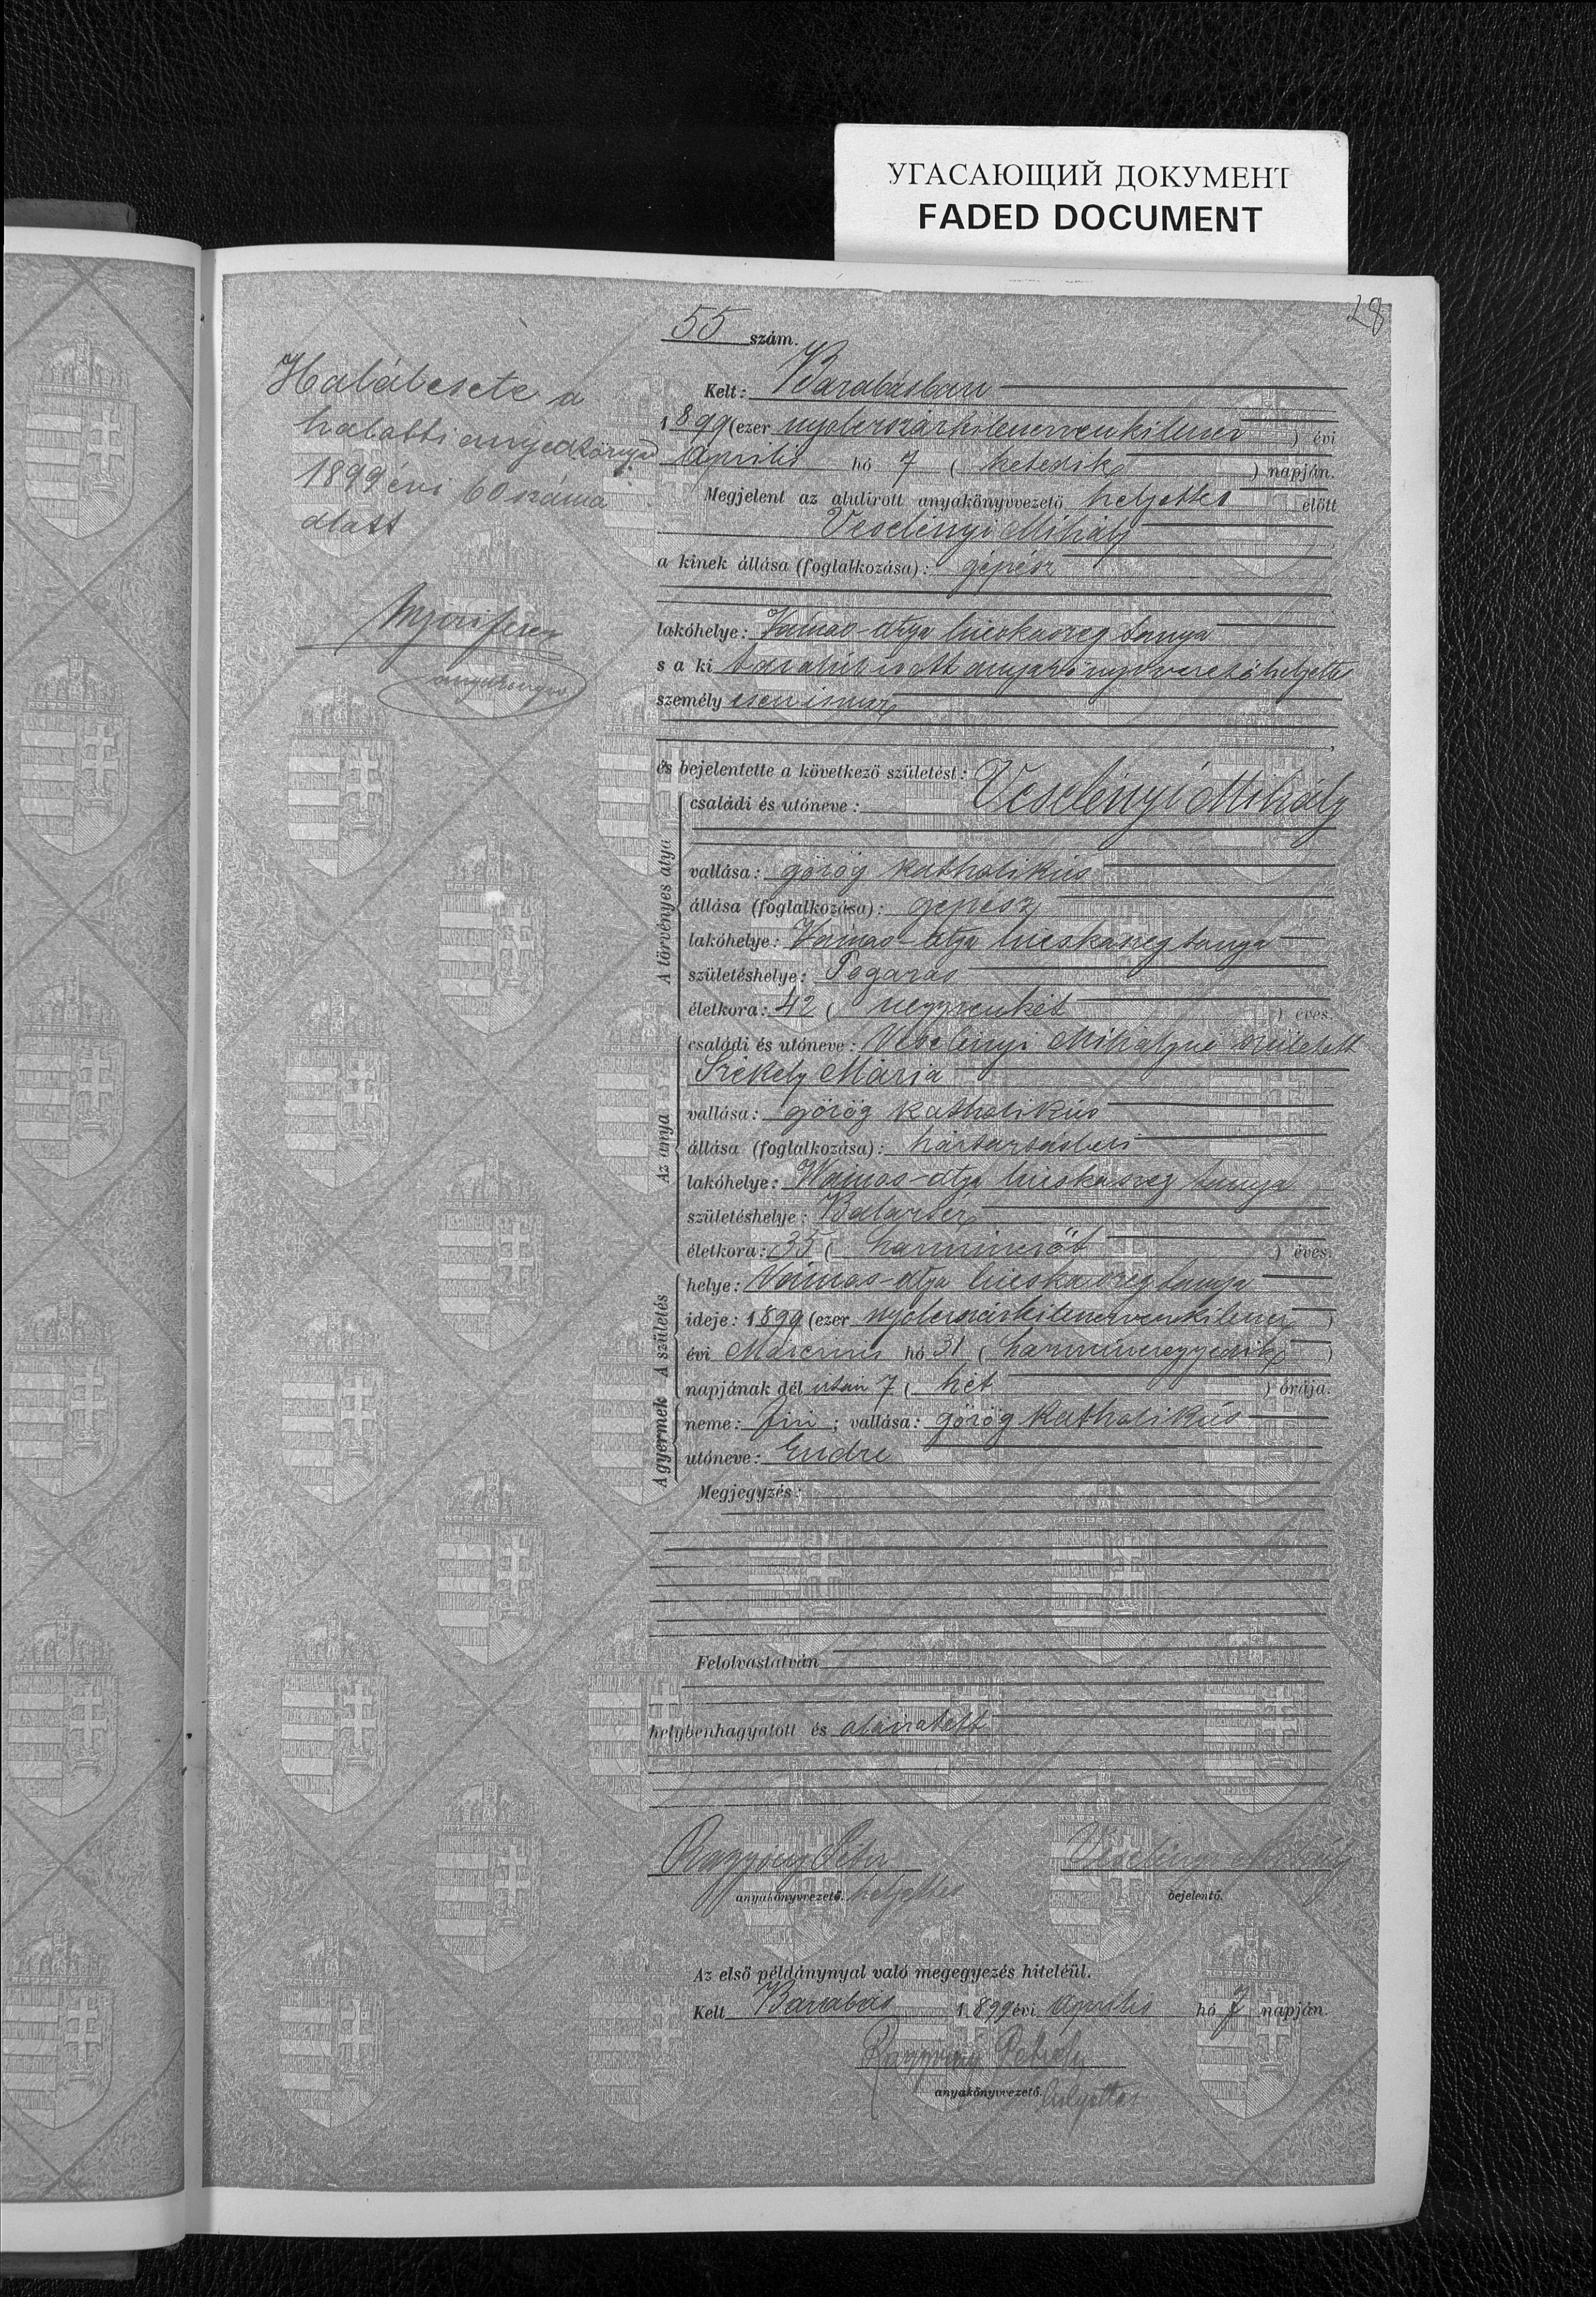 УГАСАЮЩИЙ ДОКУМЕНТ
FADED DOCUMENT
28
55 szám.
Halálesete a
halotti anyakönyv
1899 évi 60 száma
alatt
Kelt: Barabásban
1899 (ezer nyolcszázkilencvenkilenc ) évi
Április hó 7 ( hetedik ) napján.
Megjelent az alulirott anyakönyvvezető helyettes előtt
Veselényi Mihály
a kinek állása (foglalkozása): gépész
lakóhelye: Vámos-atya tanya
s a ki anyakönyvvezető helyettes
személyesen ismer
és bejelentette a következő születést:
A törvényes atya
családi és utóneve: Veselényi Mihály
vallása: görög katholikús
állása (foglalkozása): gépész
lakóhelye: Vámos-atya tanya
születéshelye: Fogaras
életkora: 42 ( negyvenkét ) éves.
Az anya
családi és utóneve: Veselényi Mihályné született
Székely Mária
vallása: görög katholikús
állása (foglalkozása): háztartásbeli
lakóhelye: Vámos-atya tanya
születéshelye:
életkora: 35 ( harmincöt ) éves.
A születés
helye: Vámos-atya tanya
ideje: 1899 (ezer nyolcszázkilencvenkilenc )
évi Márczius hó 31 ( harmincegyedik )
napjának dél után 7 ( hét ) órája.
A gyermek
neme: fiú ; vallása: görög katholikús
utóneve: Endre
Megjegyzés:
Felolvastatván
helybenhagyatott és aláiratott
Péter Veselényi Mihály
anyakönyvvezető. helyettes bejelentő.
Az első példánynyal való megegyezés hiteléül.
Kelt Barabás 1899 évi Április hó 7 napján.
anyakönyvvezető. helyettes